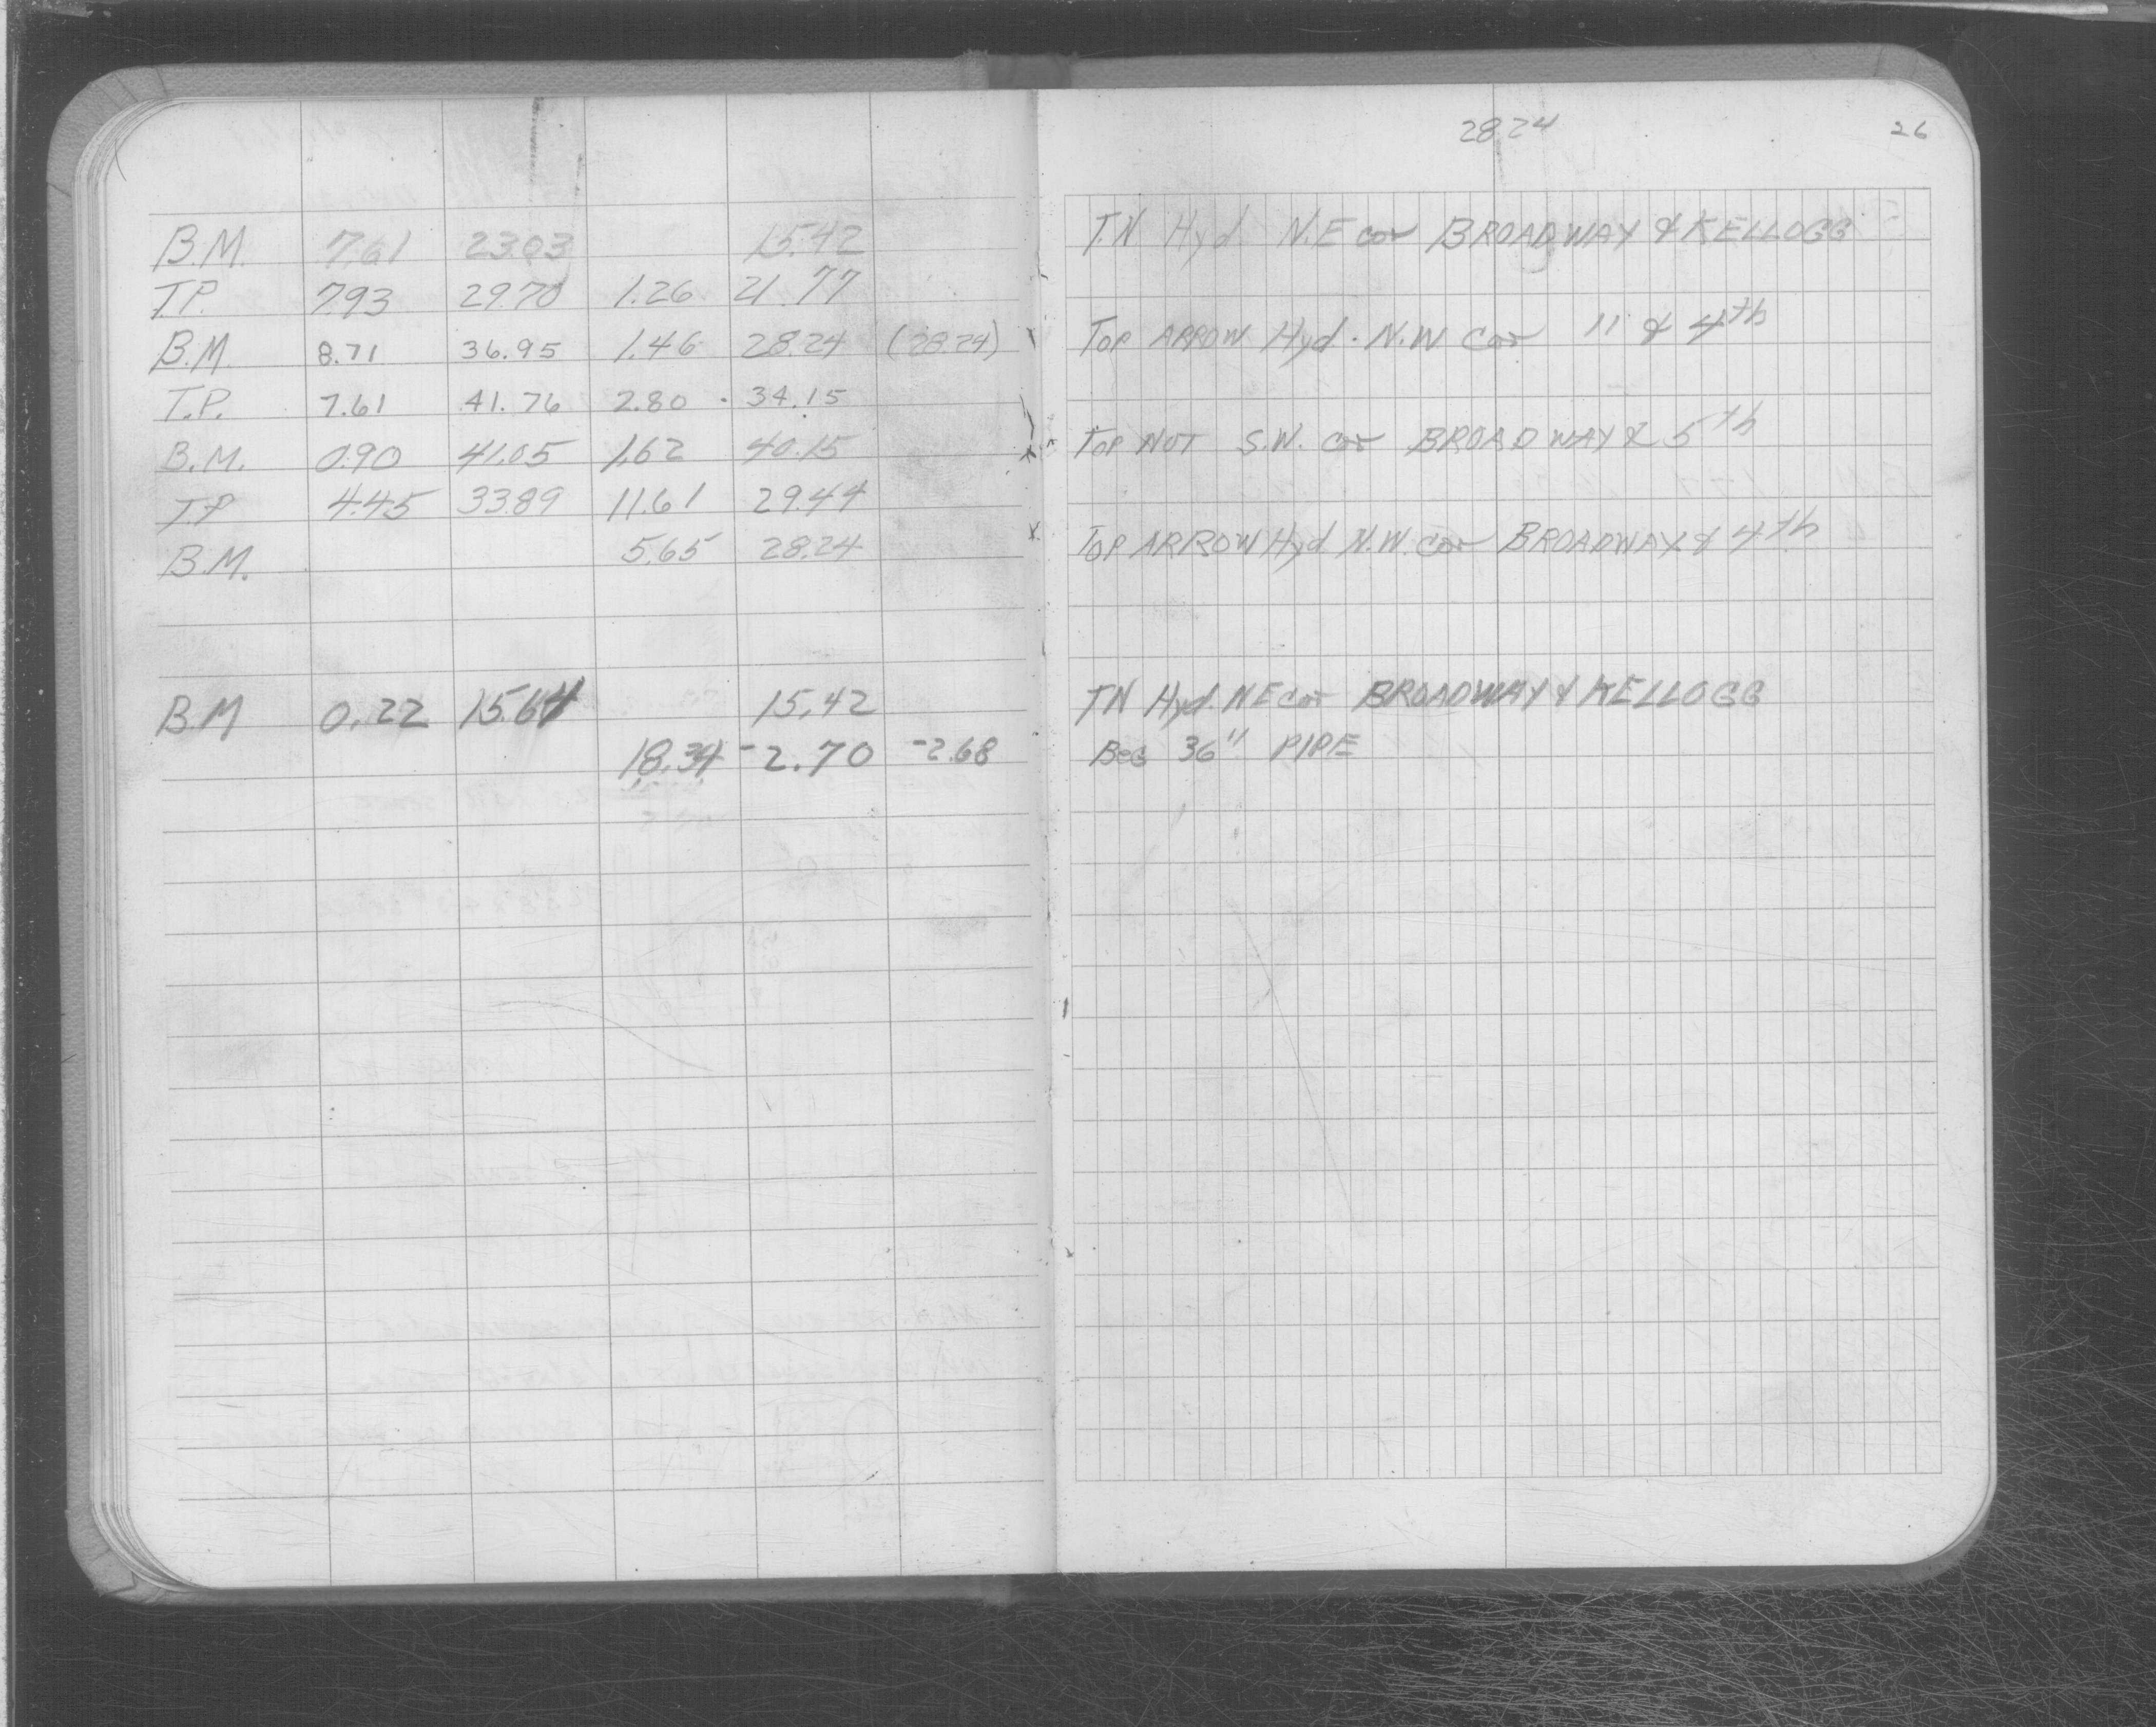 28.24 26
B.M. 7.61 23.03 15.42 T.N Hyd. N.E cor BROADWAY & KELLOGG
T.P. 7.93 29.70 1.26 21.77
B.M. 8.71 36.95 1.46 28.24 (28.24) TOP ARROW Hyd. N.W Cor 11 & 4th
T.P. 7.61 41.76 2.80 34.15
B.M. 0.90 41.05 1.62 40.15 TOP NOT S.W. cor BROADWAY & 5th
T.P 4.45 33.89 11.61 29.44
B.M. 5.65 28.24 TOP ARROW Hyd N.W. cor BROADWAY & 4th
B.M 0.22 15.64 15.42 TN Hyd. N E cor BROADWAY & KELLOGG
18.34 -2.70 -2.68 BEG 36" PIPE